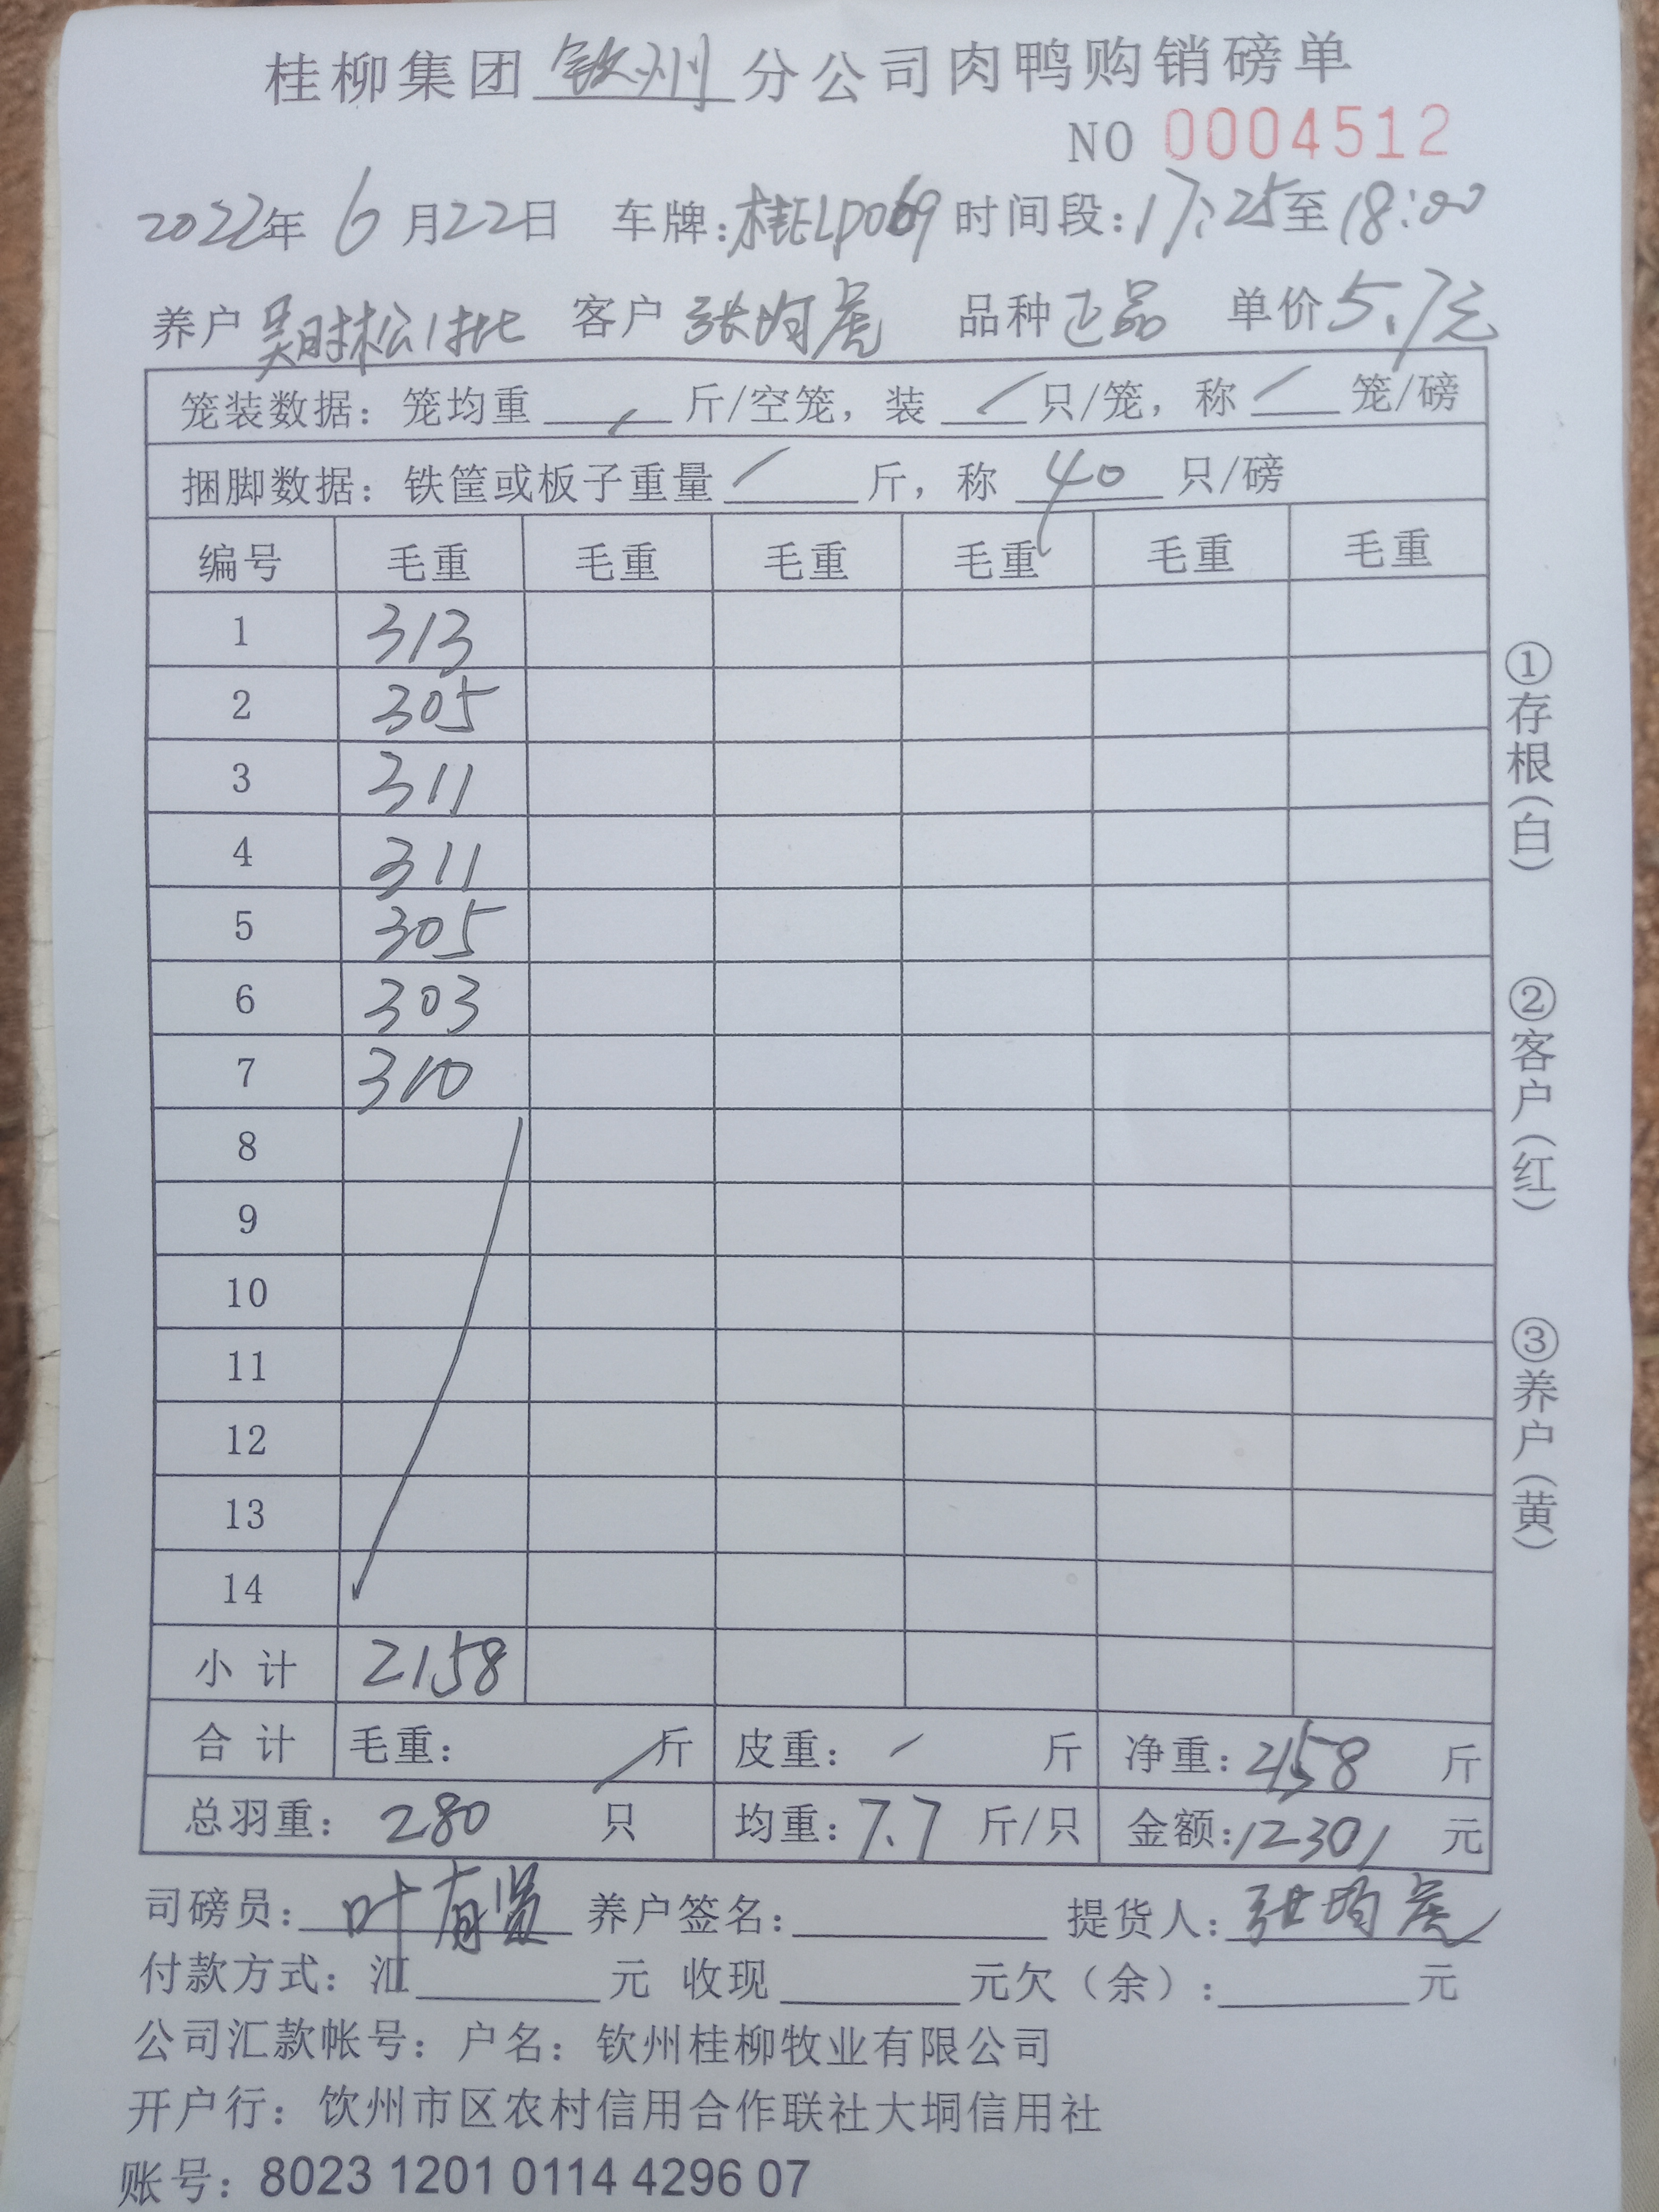 桂柳集团 钦州 分公司肉鸭购销磅单
NO 0004512
2022年 6 月22日 车牌:桂ELP069 时间段:17:25至18:00
养户 吴时松1批 客户 张均虎 品种 正品 单价 5.7元
笼装数据: 笼均重 / 斤/空笼, 装 / 只/笼, 称 / 笼/磅
捆脚数据: 铁筐或板子重量 / 斤, 称 40 只/磅
编号 毛重 毛重 毛重 毛重 毛重 毛重
1 313
2 305
3 311
4 311
5 305
6 303
7 310
8
9
10
11
12
13
14
小计 2158
合计 毛重: / 斤 皮重: / 斤 净重: 2158 斤
总羽重: 280 只 均重: 7.7 斤/只 金额: 12301 元
司磅员: 叶有贤 养户签名: 提货人: 张均虎
付款方式: 汇 元 收现 元欠(余): 元
公司汇款帐号: 户名: 钦州桂柳牧业有限公司
开户行: 钦州市区农村信用合作联社大垌信用社
账号: 8023 1201 0114 4296 07
①存根(白) ②客户(红) ③养户(黄)